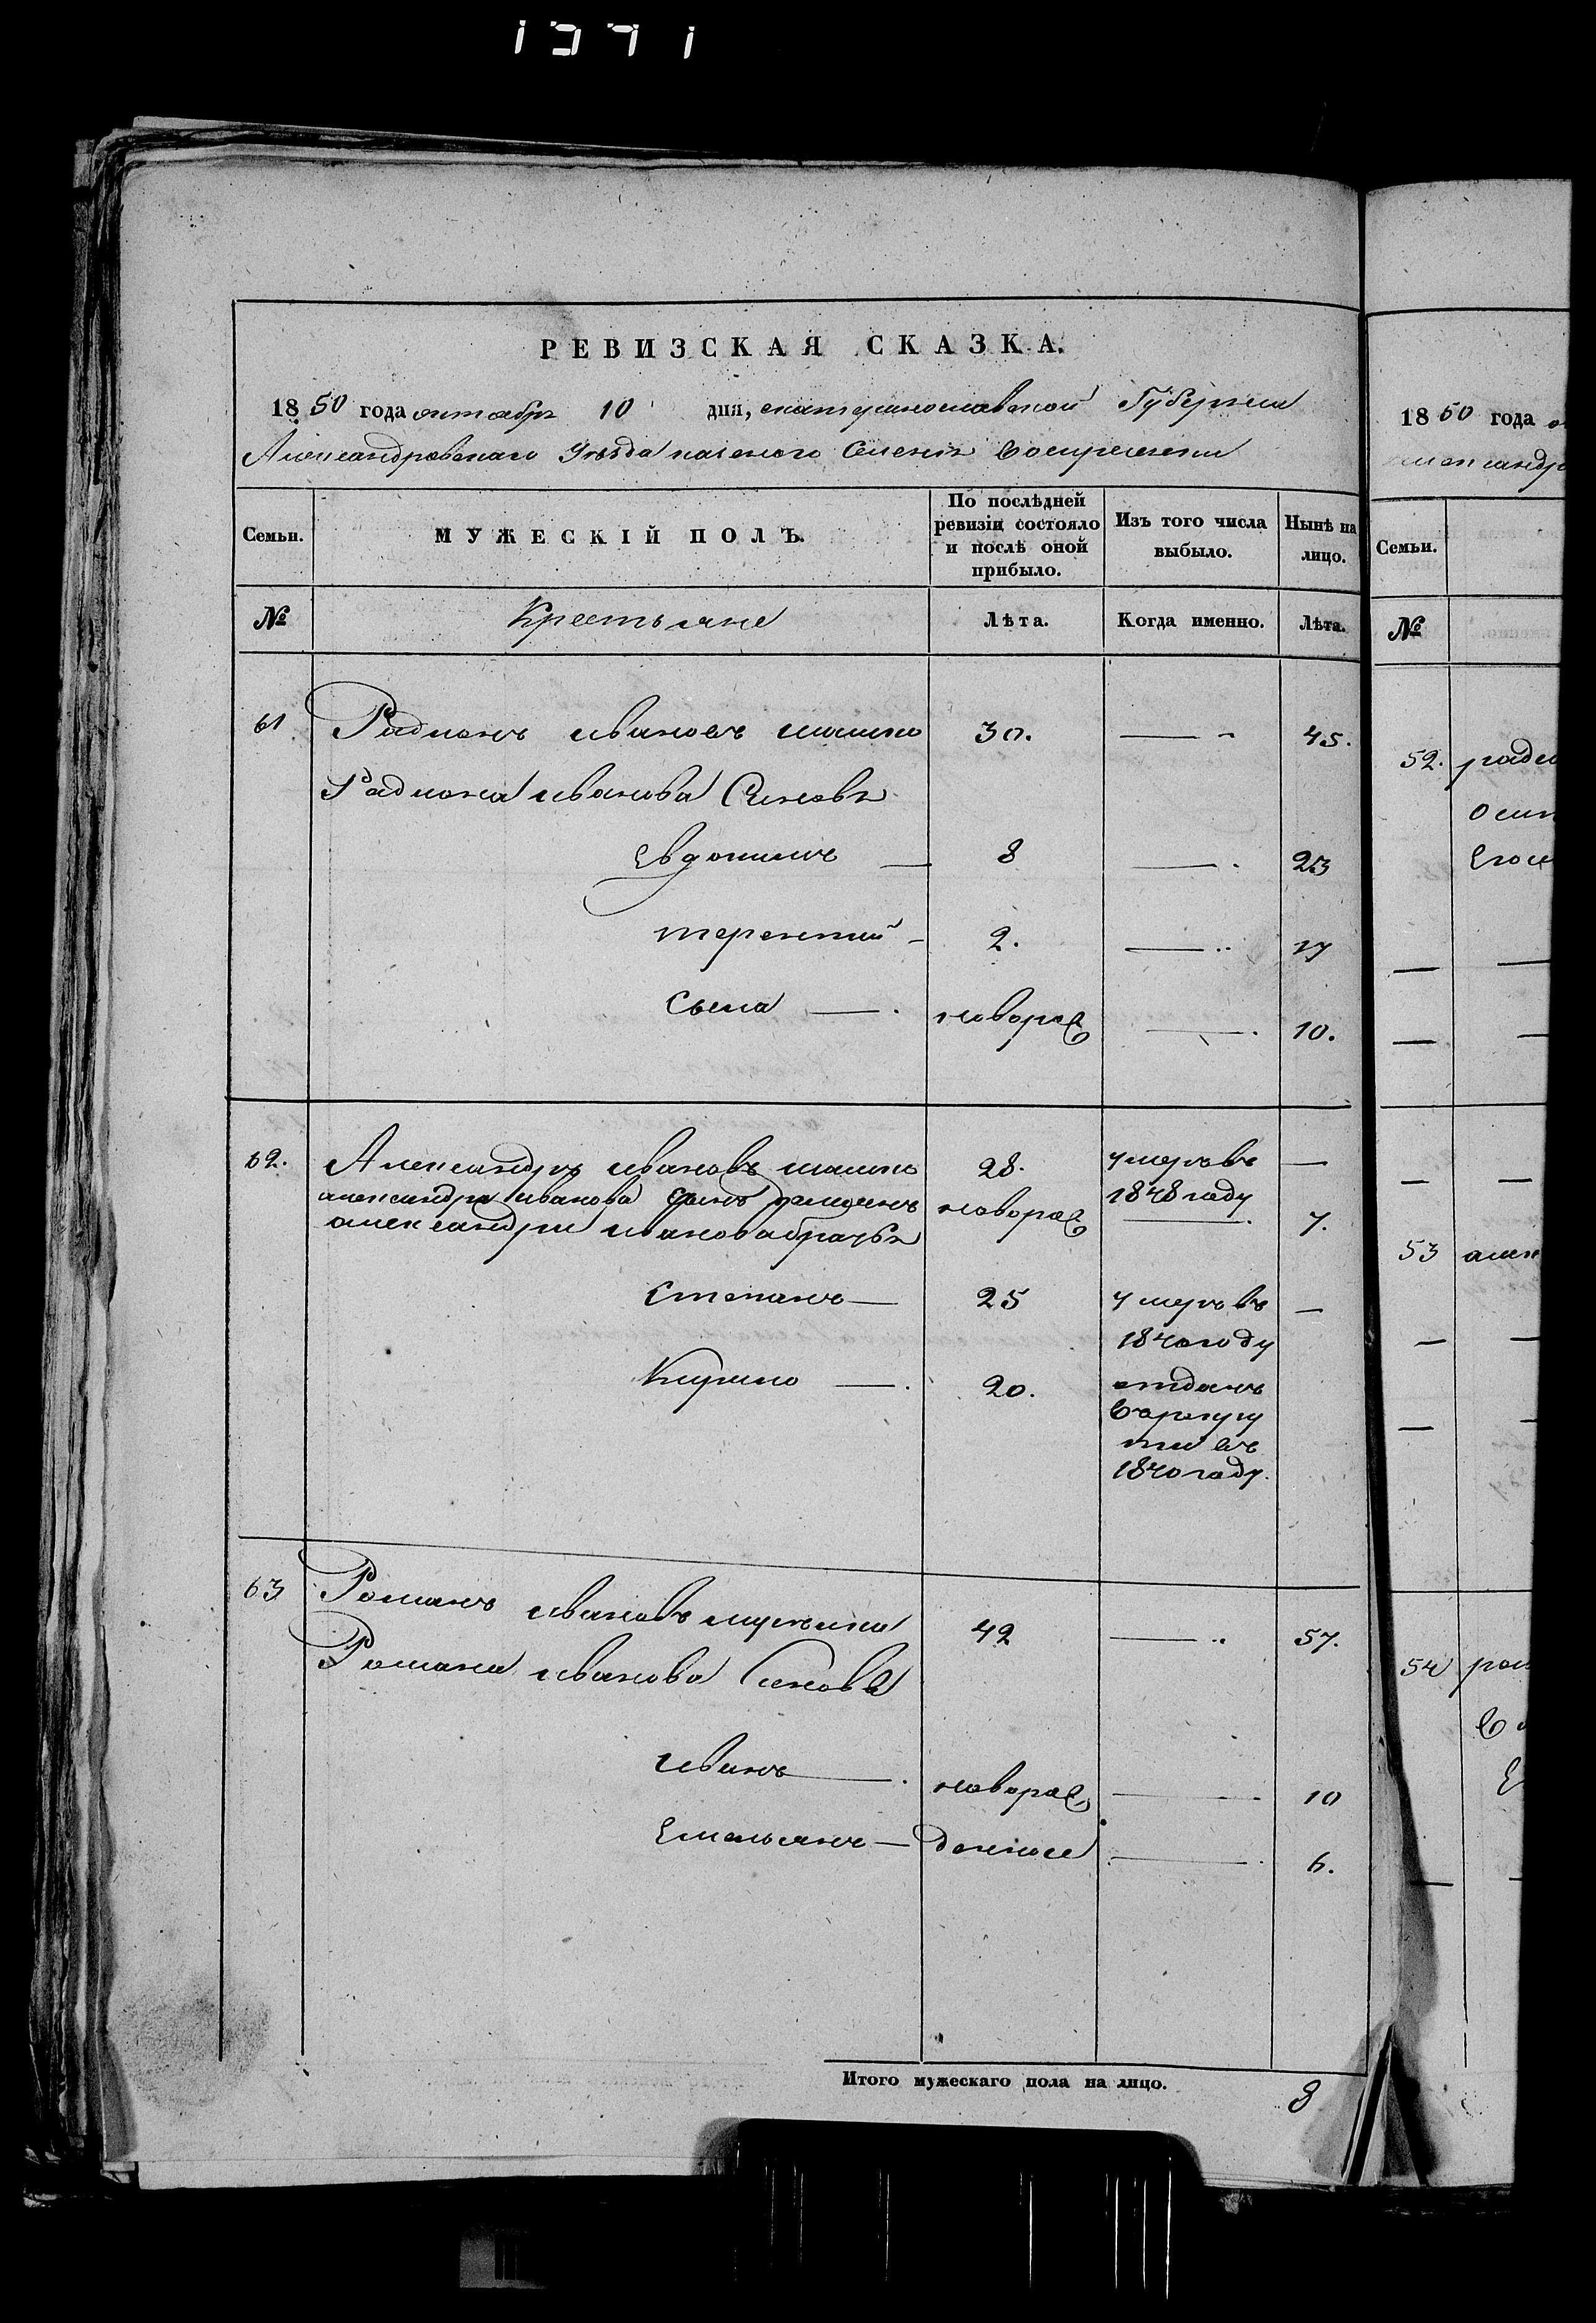 1371
РЕВИЗСКАЯ СКАЗКА.
1850 года октобря 10 дня, екатеринославской Губернии
Александровскаго Уезда казеного Селения Воскресенки
Семьи.
МУЖЕСКІЙ ПОЛЪ.
По послѣдней ревизіи состояло и послѣ оной прибыло.
Изъ того числа выбыло.
Нынѣ на лицо.
№
Крестьяне
Лѣта.
Когда именно.
Лѣта.
61 Радионъ ивановъ 30. — 45.
Радиона иванова Синовя
Евдокимъ — 8 — 23
терентий - 2. — 17
Сьема — новорож — 10.
62. Александръ ивановъ 28. умеръ въ —
александра иванова Сынъ новорож 1848 году 7.
александра иванова братья
Степанъ — 25 умеръ въ —
1840 году
Кирило — 20. отданъ
Врекру
ти въ
1840 году.
63 Романъ ивановъ 42 — 57.
Романа иванова Синовя
иванъ — новорож — 10
Емельянъ — денные — 6.
Итого мужескаго пола на лицо. 8
1850 года
Семьи.
№
52.
53
54